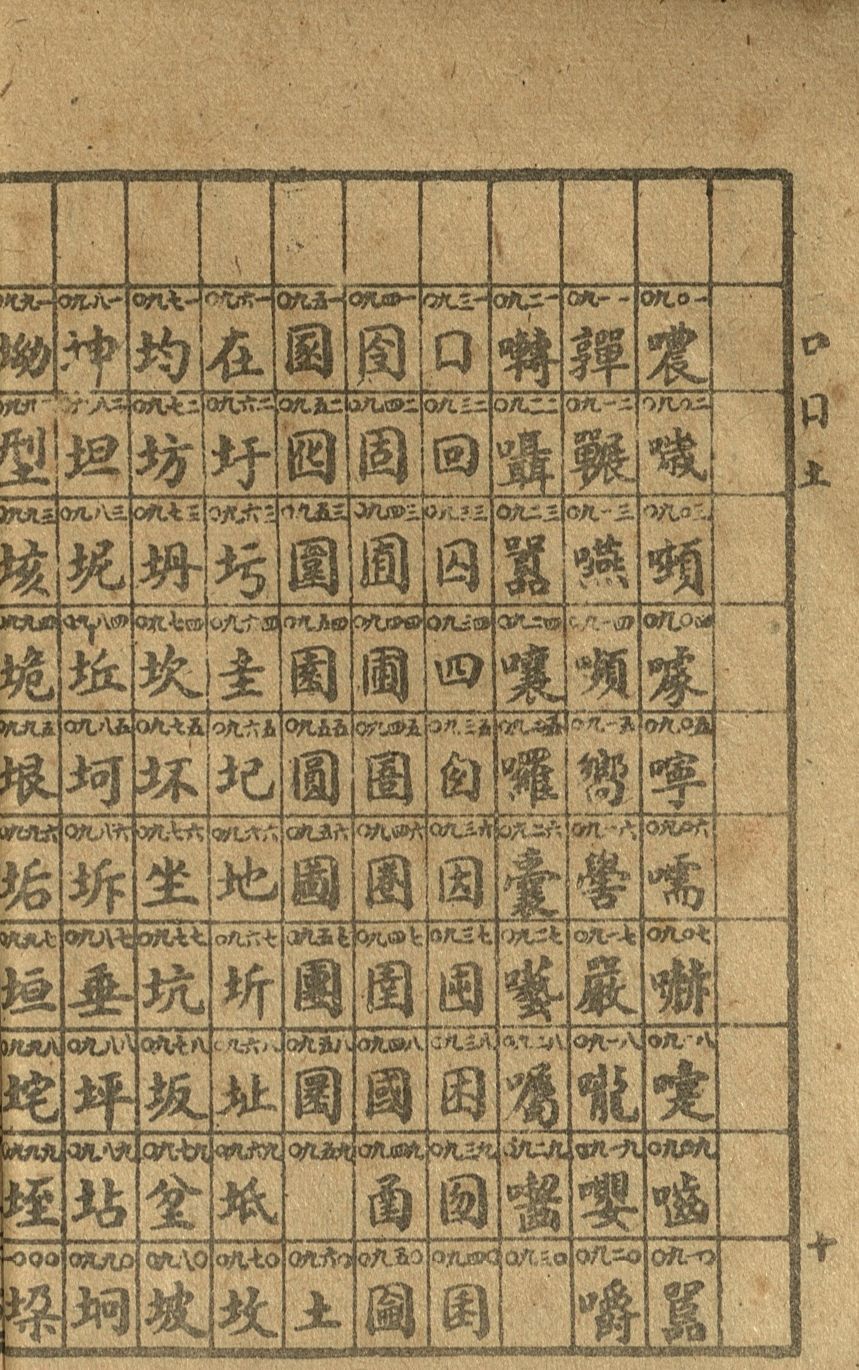 口囗土
十
〇九〇一 噥 〇九〇二 噦 〇九〇三 噸 〇九〇四 噱 〇九〇五 嚀 〇九〇六 嚅 〇九〇七 嚇 〇九〇八 嚏 〇九〇九 嚙 〇九一〇 嚚
〇九一一 嚲 〇九一二 囅 〇九一三 嚥 〇九一四 嚬 〇九一五 嚮 〇九一六 嚳 〇九一七 嚴 〇九一八 嚨 〇九一九 嚶 〇九二〇 嚼
〇九二一 囀 〇九二二 囁 〇九二三 囂 〇九二四 嚷 〇九二五 囉 〇九二六 囊 〇九二七 囈 〇九二八 囑 〇九二九 囓 〇九三〇
〇九三一 囗 〇九三二 回 〇九三三 囚 〇九三四 四 〇九三五 〇九三六 因 〇九三七 囤 〇九三八 困 〇九三九 囫 〇九四〇
〇九四一 囹 〇九四二 固 〇九四三 囿 〇九四四 圃 〇九四五 圄 〇九四六 圈 〇九四七 圉 〇九四八 國 〇九四九 〇九五〇 圇
〇九五一 〇九五二 〇九五三 圍 〇九五四 園 〇九五五 圓 〇九五六 圖 〇九五七 團 〇九五八 圜 〇九五九 〇九六〇 土
〇九六一 在 〇九六二 圩 〇九六三 圬 〇九六四 圭 〇九六五 圯 〇九六六 地 〇九六七 圻 〇九六八 址 〇九六九 坻 〇九七〇 坆
〇九七一 均 〇九七二 坊 〇九七三 坍 〇九七四 坎 〇九七五 坏 〇九七六 坐 〇九七七 坑 〇九七八 坂 〇九七九 坌 〇九八〇 坡
〇九八一 坤 〇九八二 坦 〇九八三 坭 〇九八四 坵 〇九八五 坷 〇九八六 坼 〇九八七 垂 〇九八八 坪 〇九八九 坫 〇九九〇 坰
〇九九一 坳 〇九九二 型 〇九九三 垓 〇九九四 垝 〇九九五 垠 〇九九六 垢 〇九九七 垣 〇九九八 垞 〇九九九 垤 一〇〇〇 垜